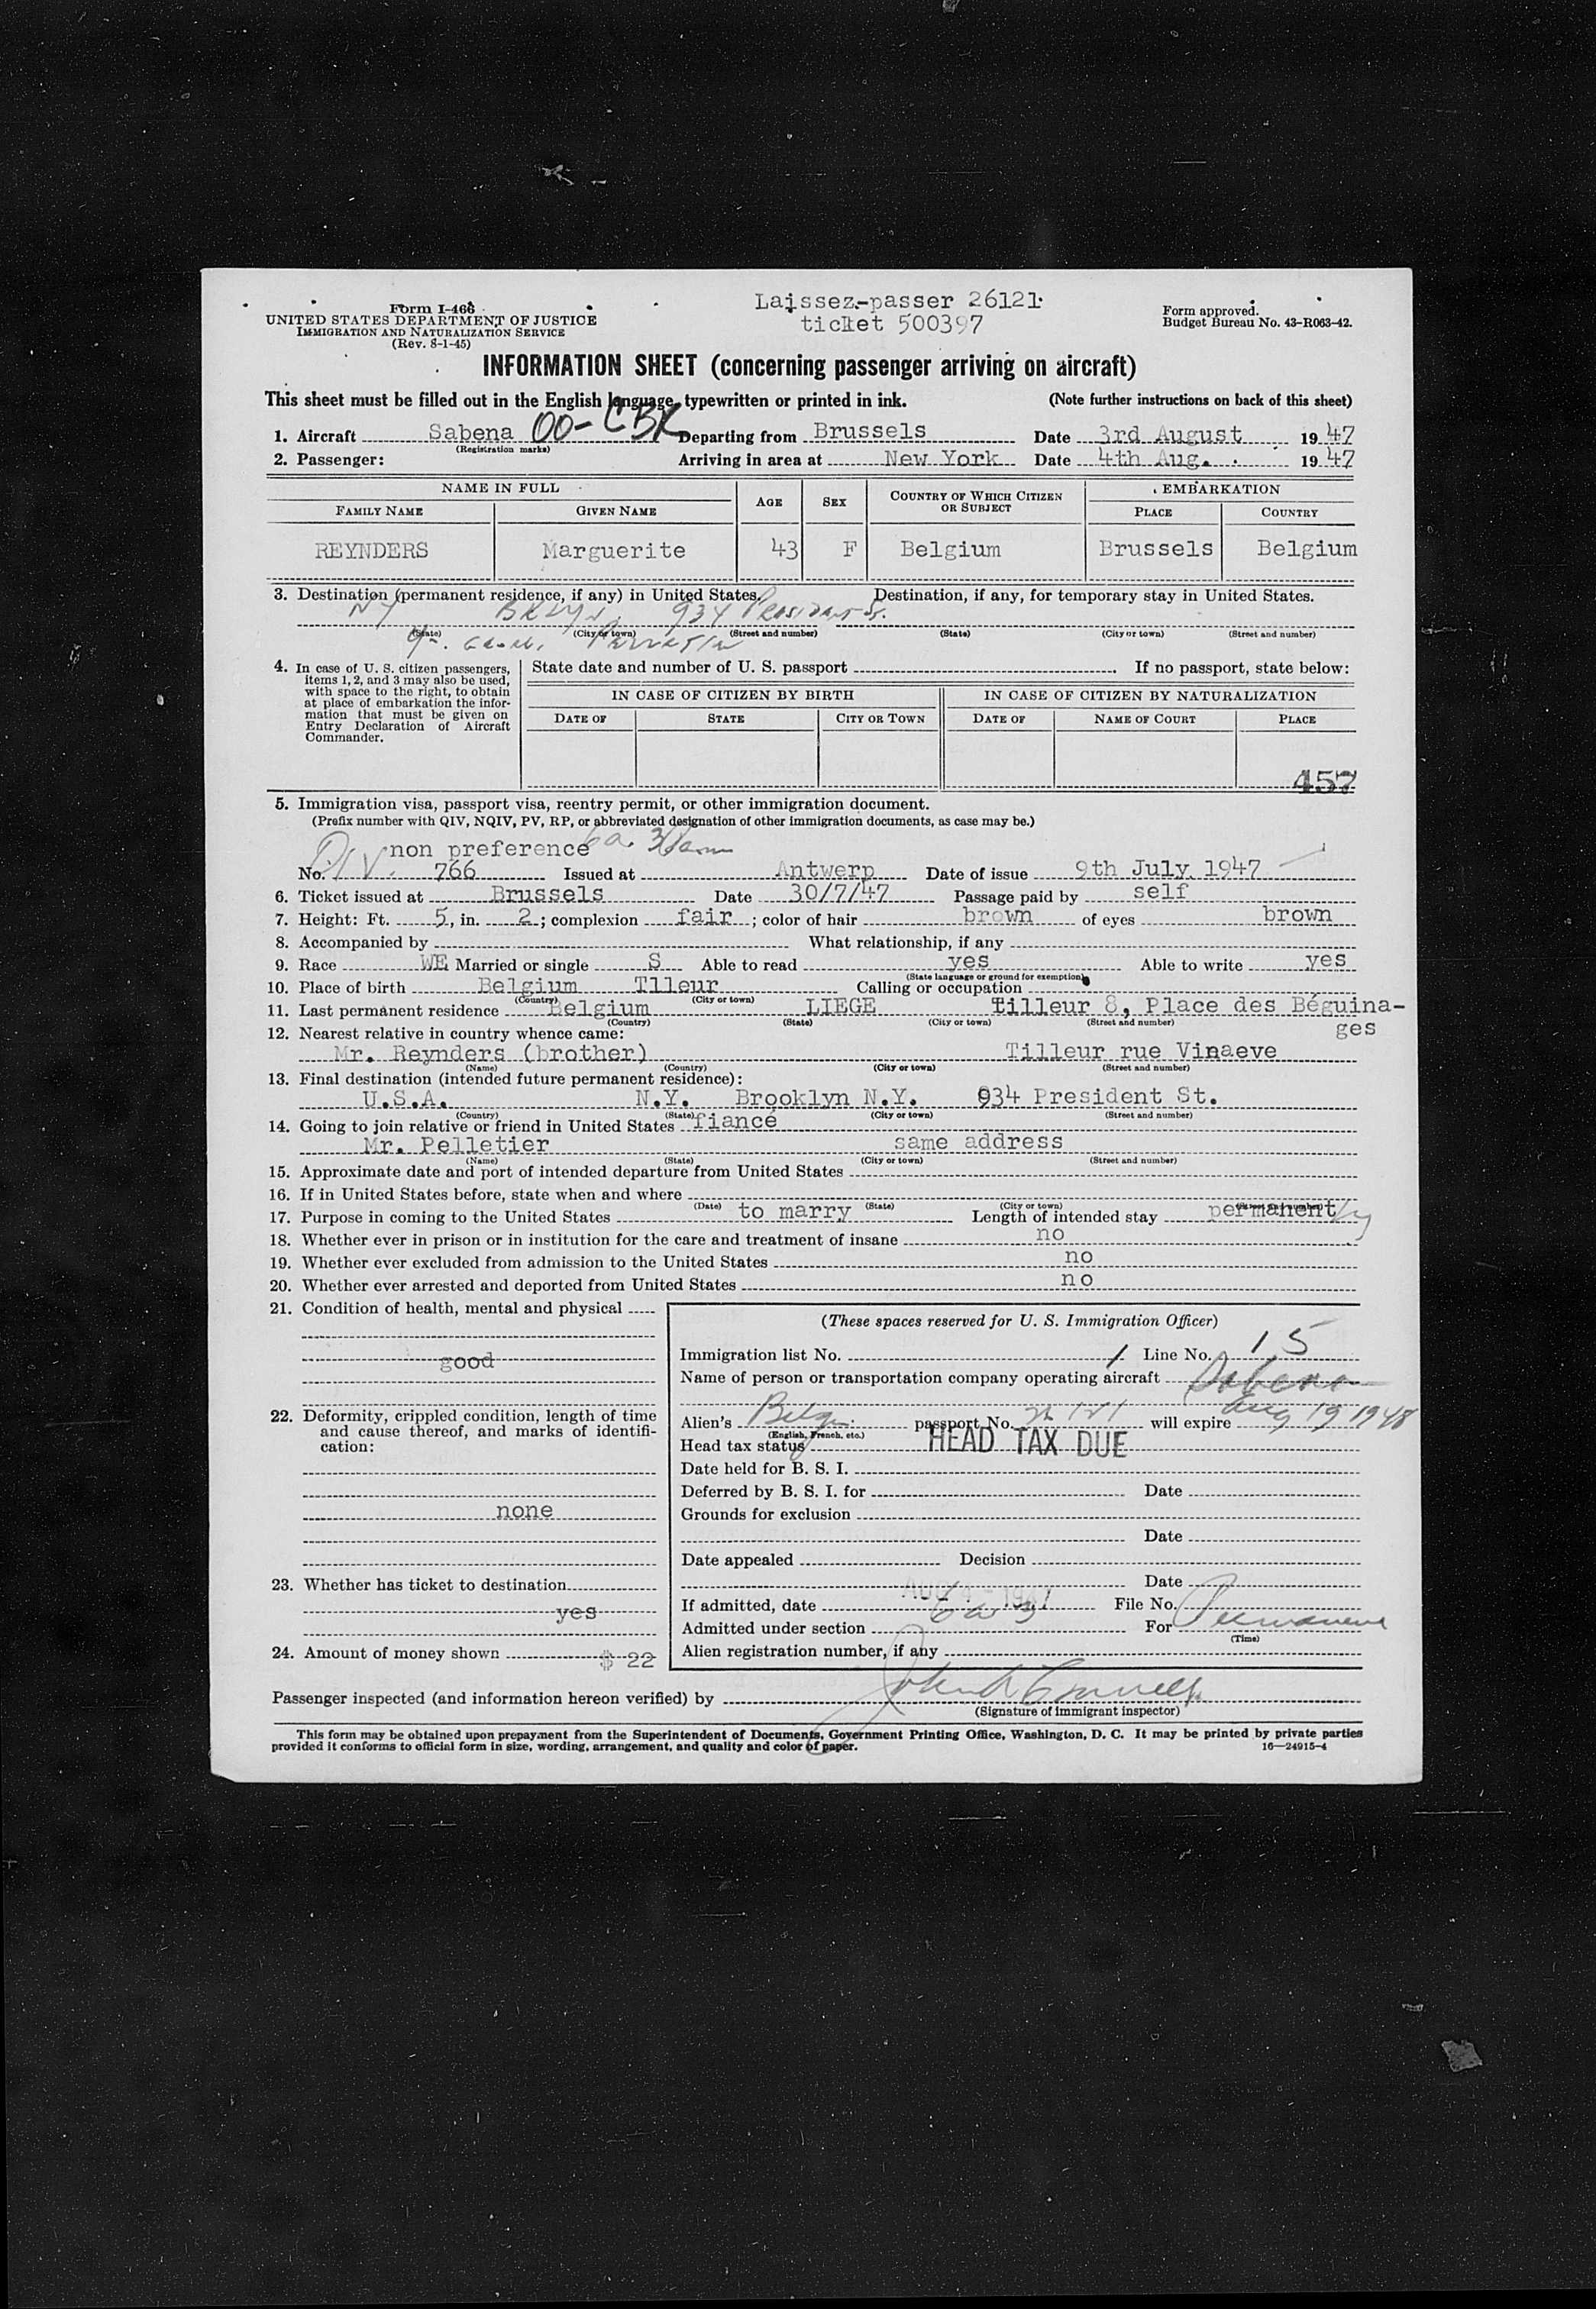 Laissez-passer 26121
ticket 500397
Form I-466
UNITED STATES DEPARTMENT OF JUSTICE
IMMIGRATION AND NATURALIZATION SERVICE
(Rev. 8-1-45)
Form approved.
Budget Bureau No. 43-R063-42.
INFORMATION SHEET (concerning passenger arriving on aircraft)
This sheet must be filled out in the English language, typewritten or printed in ink. (Note further instructions on back of this sheet)
1. Aircraft Sabena OO-CBK Departing from Brussels Date 3rd August 1947
(Registration marks)
2. Passenger: Arriving in area at New York Date 4th Aug. 1947
NAME IN FULL AGE SEX COUNTRY OF WHICH CITIZEN OR SUBJECT EMBARKATION
FAMILY NAME GIVEN NAME PLACE COUNTRY
REYNDERS Marguerite 43 F Belgium Brussels Belgium
3. Destination (permanent residence, if any) in United States. Destination, if any, for temporary stay in United States.
NY BKLYN 934 President St.
(State) (City or town) (Street and number) (State) (City or town) (Street and number)
4. In case of U. S. citizen passengers, items 1, 2, and 3 may also be used, with space to the right, to obtain at place of embarkation the information that must be given on Entry Declaration of Aircraft Commander.
State date and number of U. S. passport If no passport, state below:
IN CASE OF CITIZEN BY BIRTH IN CASE OF CITIZEN BY NATURALIZATION
DATE OF STATE CITY OR TOWN DATE OF NAME OF COURT PLACE
457
5. Immigration visa, passport visa, reentry permit, or other immigration document.
(Prefix number with QIV, NQIV, PV, RP, or abbreviated designation of other immigration documents, as case may be.)
QIV. non preference 6a3
No. 766 Issued at Antwerp Date of issue 9th July 1947
6. Ticket issued at Brussels Date 30/7/47 Passage paid by self
7. Height: Ft. 5, in. 2; complexion fair; color of hair brown of eyes brown
8. Accompanied by What relationship, if any
9. Race WE Married or single S Able to read yes Able to write yes
(State language or ground for exemption)
10. Place of birth Belgium Tlleur Calling or occupation
(Country) (City or town)
11. Last permanent residence Belgium LIEGE tilleur 8, Place des Béguina-
ges
(Country) (State) (City or town) (Street and number)
12. Nearest relative in country whence came:
Mr. Reynders (brother) Tilleur rue Vinaeve
(Name) (Country) (City or town) (Street and number)
13. Final destination (intended future permanent residence):
U.S.A. N.Y. Brooklyn N.Y. 934 President St.
(Country) (State) (City or town) (Street and number)
14. Going to join relative or friend in United States fiancé
Mr. Pelletier same address
(Name) (State) (City or town) (Street and number)
15. Approximate date and port of intended departure from United States
16. If in United States before, state when and where
(Date) (State) (City or town) (Street and number)
17. Purpose in coming to the United States to marry Length of intended stay permanently
18. Whether ever in prison or in institution for the care and treatment of insane no
19. Whether ever excluded from admission to the United States no
20. Whether ever arrested and deported from United States no
21. Condition of health, mental and physical
good
22. Deformity, crippled condition, length of time and cause thereof, and marks of identification:
none
23. Whether has ticket to destination
yes
24. Amount of money shown $ 22
(These spaces reserved for U. S. Immigration Officer)
Immigration list No. 1 Line No. 15
Name of person or transportation company operating aircraft Sabena
Alien's Belg. passport No. 26121 will expire Aug 19 1948
(English, French, etc.)
Head tax status HEAD TAX DUE
Date held for B. S. I.
Deferred by B. S. I. for Date
Grounds for exclusion
Date
Date appealed Decision
Date
If admitted, date AUG 4 - 1947 File No.
Admitted under section 6a3 For Permanent
(Time)
Alien registration number, if any
Passenger inspected (and information hereon verified) by
(Signature of immigrant inspector)
This form may be obtained upon prepayment from the Superintendent of Documents, Government Printing Office, Washington, D. C. It may be printed by private parties
provided it conforms to official form in size, wording, arrangement, and quality and color of paper. 16—24915-4